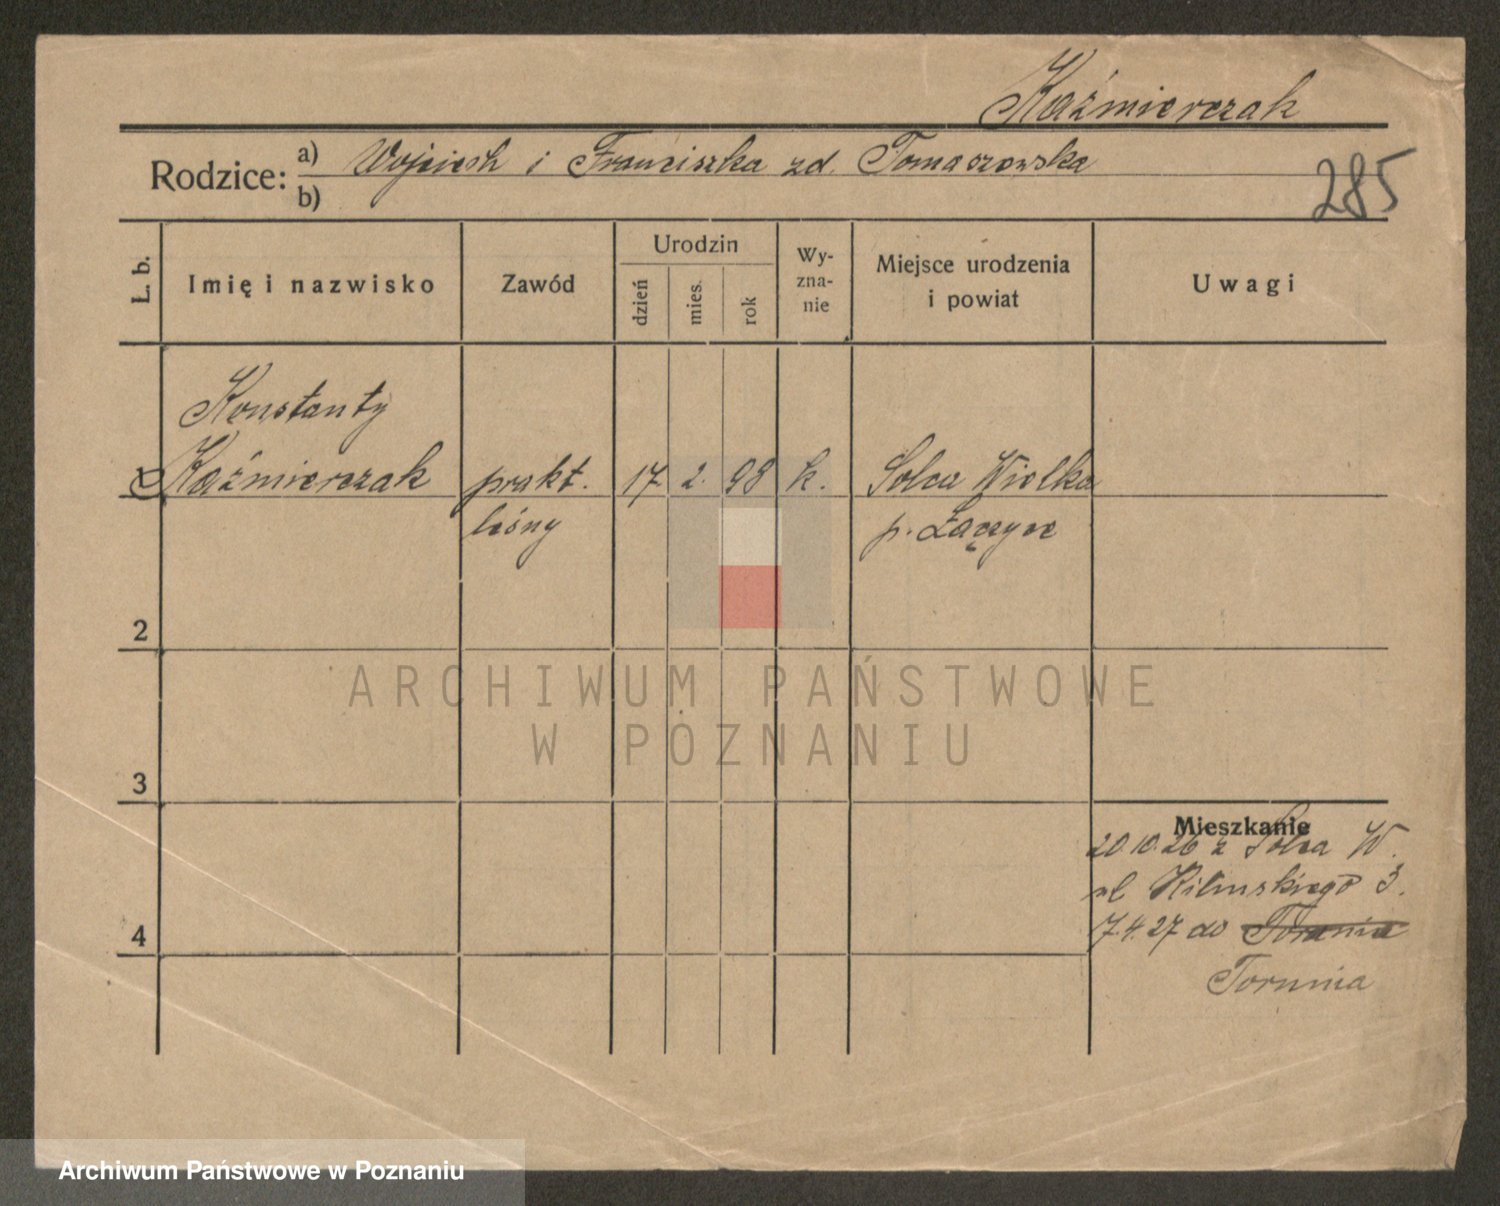 Kaźmierczak
Rodzice: a) Wojciech i Franciszka zd. Tomaszewska
b)
285
L. b.
Imię i nazwisko
Zawód
Urodzin
dzień
mies.
rok
Wy-
zna-
nie
Miejsce urodzenia
i powiat
Uwagi
Konstanty
Kaźmierczak prakt. 17 2. 98 k. Solca Wielka
leśny p. Łęczyce
2
3
4
Mieszkanie
20.10.26 z Solca W.
ul Kilińskiego 3.
7.4.27 do Torunia
Torunia
ARCHIWUM PAŃSTWOWE
W POZNANIU
Archiwum Państwowe w Poznaniu